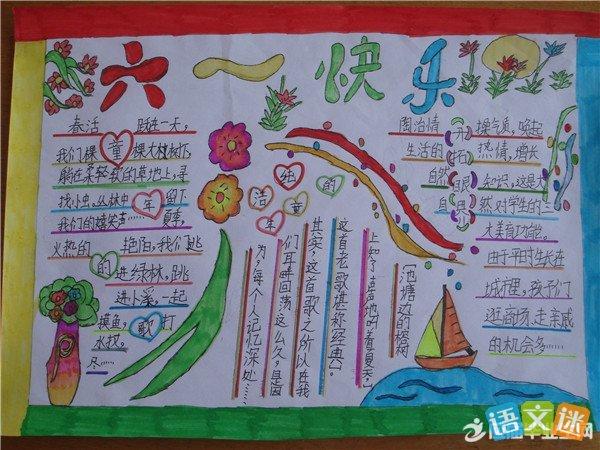 六一快乐
春活 跃在一天,
我们棵 童 棵大植树下
躺在柔轻软的草地上,寻
找小虫、丛林中 年 留下
我们的嬉笑声…… 夏季,
火热的 的 艳阳,我们跳
进绿林,跳
进小溪,一起
摸鱼, 歌 打
水杖,
尽……
纯洁的童年
池塘边的榕树
上知了在声声地叫着夏天,
这首老歌堪称经典。
其实,这首歌之所以在我
们耳畔回荡这么久,是因
为,每个人记忆深处……
陶冶情 开 操气质,唤起
生活的 拓 热情,增长
自然 眼 知识,这是大
自 界 然对学生的三
大美育功能。
由于平时生长在
城市里,孩子们
逛商场、走亲戚
的机会多……
语文迷